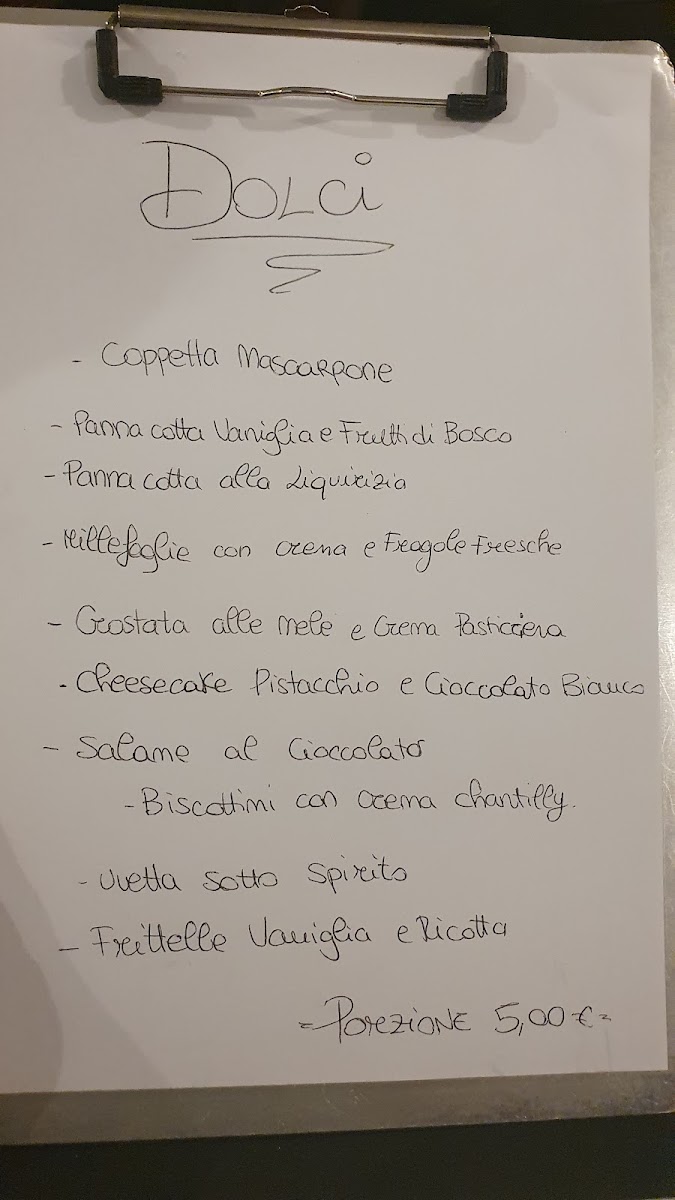 DOLCi
- Coppetta Mascarpone
- Panna cotta Vaniglia e Frutti di Bosco
- Panna cotta alla Liquirizia
- Millefoglie con crema e Fragole Fresche
- Crostata alle mele e Crema Pasticciera
- Cheesecake Pistacchio e Cioccolato Bianco
- Salame al Cioccolato
- Biscottini con crema chantilly.
- Uvetta sotto spirito
- Frittelle Vaniglia e Ricotta
= PORZIONE 5,00 € =